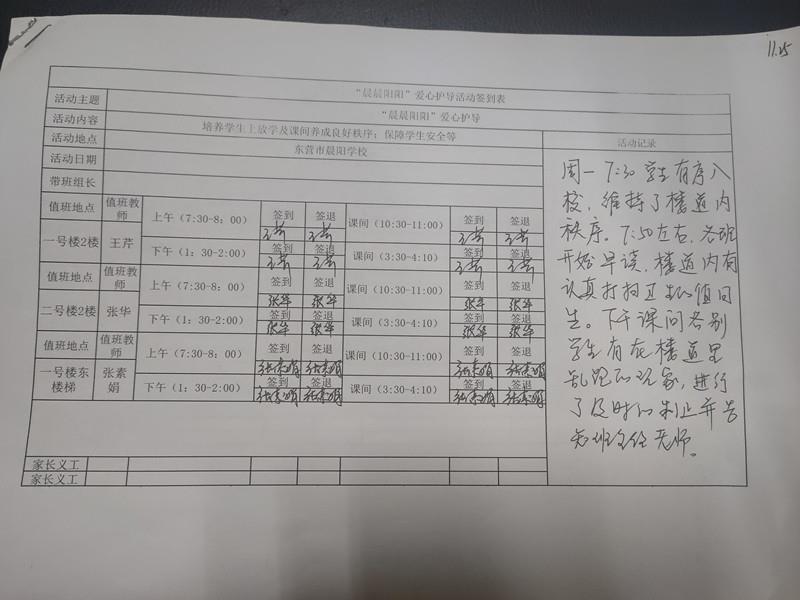 11.25
"晨晨阳阳"爱心护导活动签到表
活动主题 "晨晨阳阳"爱心护导
活动内容 培养学生上放学及课间养成良好秩序；保障学生安全等
活动地点 东营市晨阳学校 活动记录
活动日期
带班组长
值班地点 值班教师 上午（7:30-8：00） 签到 签退 课间（10:30-11:00） 签到 签退
王芹 王芹 王芹 王芹
一号楼2楼 王芹 下午（1：30-2:00） 签到 签退 课间（3:30-4:10） 签到 签退
王芹 王芹 王芹 王芹
值班地点 值班教师 上午（7:30-8：00） 签到 签退 课间（10:30-11:00） 签到 签退
张华 张华 张华 张华
二号楼2楼 张华 下午（1：30-2:00） 签到 签退 课间（3:30-4:10） 签到 签退
张华 张华 张华 张华
值班地点 值班教师 上午（7:30-8：00） 签到 签退 课间（10:30-11:00） 签到 签退
张素娟 张素娟 张素娟 张素娟
一号楼东楼梯 张素娟 下午（1：30-2:00） 签到 签退 课间（3:30-4:10） 签到 签退
张素娟 张素娟 张素娟 张素娟
家长义工
家长义工
周一7:30学生有序入
校，维持了楼道内
秩序。7:50左右，各班
开始早读，楼道内有
认真打扫卫生的值日
生。下午课间各别
学生有在楼道里
乱跑的现象，进行
了及时的制止并告
知班主任老师。